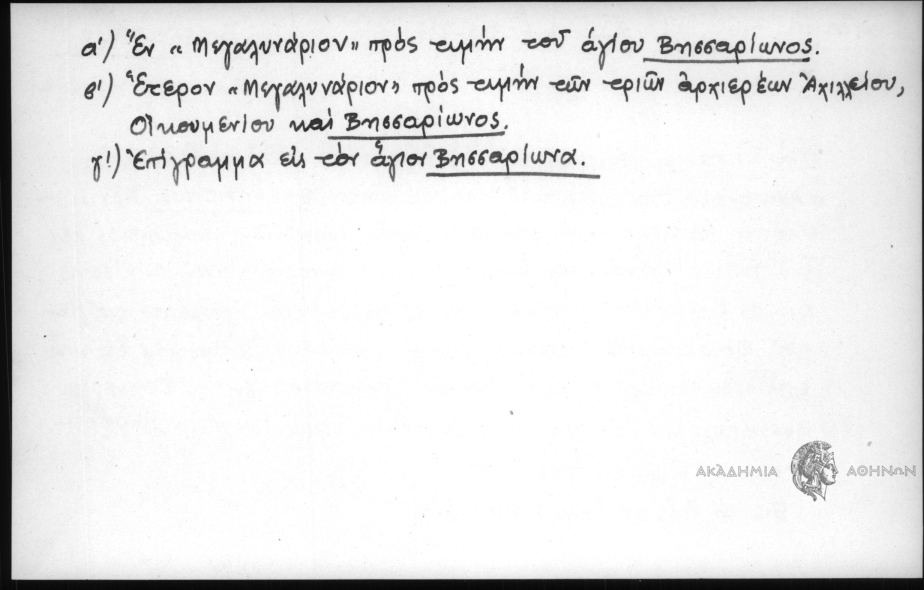 α') Ἓν «Μεγαλυνάριον» πρὸς τιμὴν τοῦ ἁγίου Βησσαρίωνος.
β') Ἕτερον «Μεγαλυνάριον» πρὸς τιμὴν τῶν τριῶν ἀρχιερέων Ἀχιλλείου,
Οἰκουμενίου καὶ Βησσαρίωνος.
γ'.) Ἐπίγραμμα εἰς τὸν ἅγιον Βησσαρίωνα.
ΑΚΑΔΗΜΙΑ ΑΘΗΝΩΝ